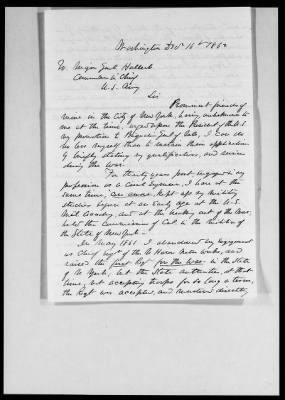 Washington Feb 16th 1862
To Major Genl Halleck
Commander in Chief
U.S. Army
Sir
Prominent friends of
mine in the City of New York, having, unbeknown to
me at the time, urged upon the President of the U.S.
my promotion to Major Genl of Vols, I can do
no less myself than to sustain their application
by briefly stating my qualifications, and services
during the war.
For thirty years past, engaged in my
profession as a Civil Engineer, I have at the
same time, con amore, kept up my military
studies begun at an early age at the U.S.
Mil Academy, and at the breaking out of the war,
held the Commission of Col in the militia of
the State of New York —
In May 1861 I abandoned my engagement
as Chief Engr of the N Haven Water works, and
raised the first Regt for the War in the State
of N York, but the State authorities, at that
time, not accepting troops for so long a term,
the Regt was accepted, and mustered directly